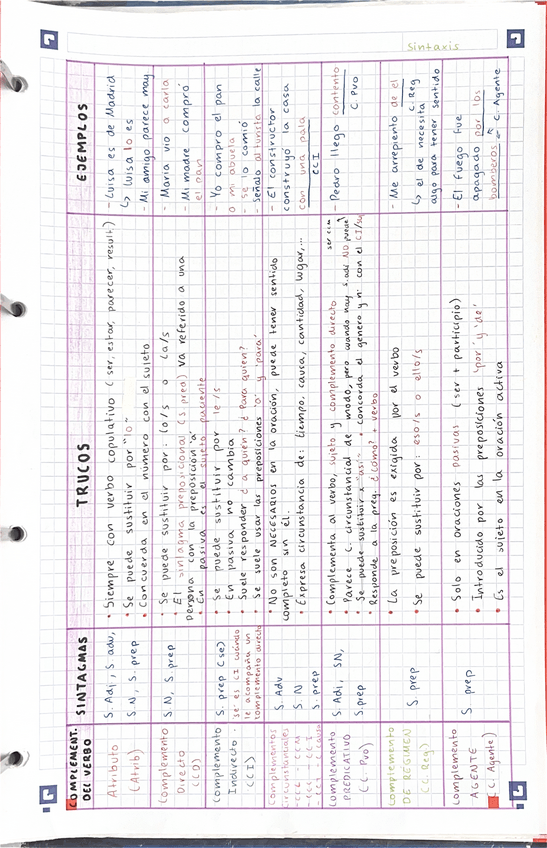 Sintaxis
COMPLEMENT.
DEL VERBO
SINTAGMAS
TRUCOS
EJEMPLOS
Atributo
(Atrib)
S. Adj, S adv,
S. N, S. prep
• Siempre con verbo copulativo (ser, estar, parecer, result)
• Se puede sustituir por "lo"
• Concuerda en el número con el sujeto
- Luisa es de Madrid
↳ Luisa lo es
- Mi amigo parece muy
Complemento
Directo
(CD)
S. N, S. prep
• Se puede sustituir por: lo/s o la/s
• El sintagma preposicional (s prep) va referido a una
Persona con la preposición 'a'
• En pasiva es el sujeto paciente
- Maria vio a carla
- Mi madre compró
el pan
Complemento
Indirecto
(CI)
S. prep (se)
- se es CI cuando
le acompaña un
complemento directo
• Se puede sustituir por le/s
• En pasiva no cambia
• Suele responder ¿a quien? ¿Para quien?
• Se suele usar las preposiciones 'a' y 'para'
- Yo compro el pan
a mi abuela
- se lo comió
- Señaló al turista la calle
Complementos
circunstanciales
S. Adv.
S. N
S. prep
• No son NECESARIOS en la oración, puede tener sentido
completo sin él.
• Expresa circunstancia de: tiempo, causa, cantidad, lugar,...
- El constructor
construyó la casa
con una pala
CCI
Complemento
PREDICATIVO
(C. Pvo)
S. Adj, SN,
S. prep
• Complementa al verbo, sujeto y complemento directo
• Parece C. circunstancial de modo, pero cuando hay S. adj NO puede
ser CCM
• Se puede sustituir x "así" • concorda el genero y nº con el CI/suj
• Responde a la preg. ¿cómo? + verbo
- Pedro llegó contento
C. Pvo
Complemento
DE RÉGIMEN
(C. Reg)
S. prep
• La preposición es exigida por el verbo
• Se puede sustituir por: eso/s o ello/s
- Me arrepiento de el
C. Reg
↳ el de necesita
algo para tener sentido
Complemento
AGENTE
(C. Agente)
S. prep
• Solo en oraciones pasivas (ser + participio)
• Introducido por las preposiciones 'por' y 'de'
• Es el sujeto en la oración activa
- El fuego fue
apagado por los
bomberos = C. Agente